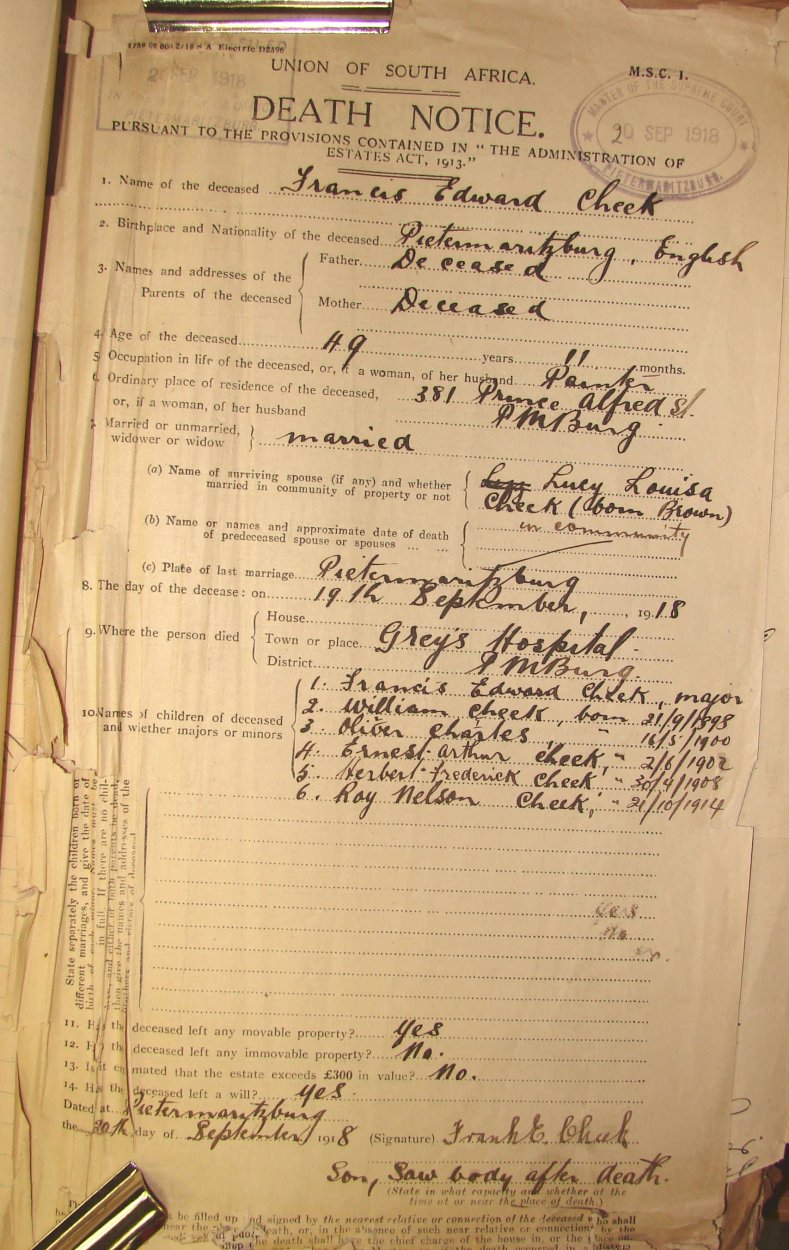 1759 2/18 S A Electric D2596
FILED
20 SEP 1918
PIETERMARITZBURG
M.S.C. 1.
MASTER OF THE SUPREME COURT
20 SEP 1918
PIETERMARITZBURG.
UNION OF SOUTH AFRICA.
DEATH NOTICE.
PURSUANT TO THE PROVISIONS CONTAINED IN "THE ADMINISTRATION OF
ESTATES ACT, 1913."
1. Name of the deceased Francis Edward Cheek
2. Birthplace and Nationality of the deceased Pietermaritzburg, English
3. Names and addresses of the Parents of the deceased
Father Deceased
Mother Deceased
4. Age of the deceased 49 years 11 months.
5. Occupation in life of the deceased, or, if a woman, of her husband Painter
6. Ordinary place of residence of the deceased, 381 Prince Alfred St.
or, if a woman, of her husband P M Burg
7. Married or unmarried, widower or widow } married
(a) Name of surviving spouse (if any) and whether Lucy Louisa
married in community of property or not Cheek (born Brown)
in community
(b) Name or names and approximate date of death
of predeceased spouse or spouses
(c) Place of last marriage Pietermaritzburg
8. The day of the decease: on 19th September, 1918
9. Where the person died
House
Town or place Grey's Hospital
District P M Burg.
10. Names of children of deceased
and whether majors or minors
1. Francis Edward Cheek, major
2. William Cheek, born 21/9/1898
3. Oliver Charles, " 16/5/1900
4. Ernest Arthur Cheek, " 2/6/1902
5. Herbert Frederick Cheek, " 30/4/1908
6. Roy Nelson Cheek, " 21/10/1914
State separately the children born of
different marriages, and give the date of
birth of each minor. Names must be
in full. If there are no chil-
dren, and either or both parents be dead,
then give the names and addresses of the
brothers and sisters of deceased
Yes
No
11. Has the deceased left any movable property? Yes
12. Has the deceased left any immovable property? No.
13. Is it estimated that the estate exceeds £300 in value? No.
14. Has the deceased left a will? Yes.
Dated at Pietermaritzburg
the 20th day of September 1918 (Signature) Frank E. Cheek
Son, Saw body after death.
(State in what capacity and whether at the
time at or near the place of death.)
be filled up and signed by the nearest relative or connection of the deceased who shall
near the place of death, or, in the absence of such near relative or connection, by the
the death shall have the chief charge of the house in, or the place on